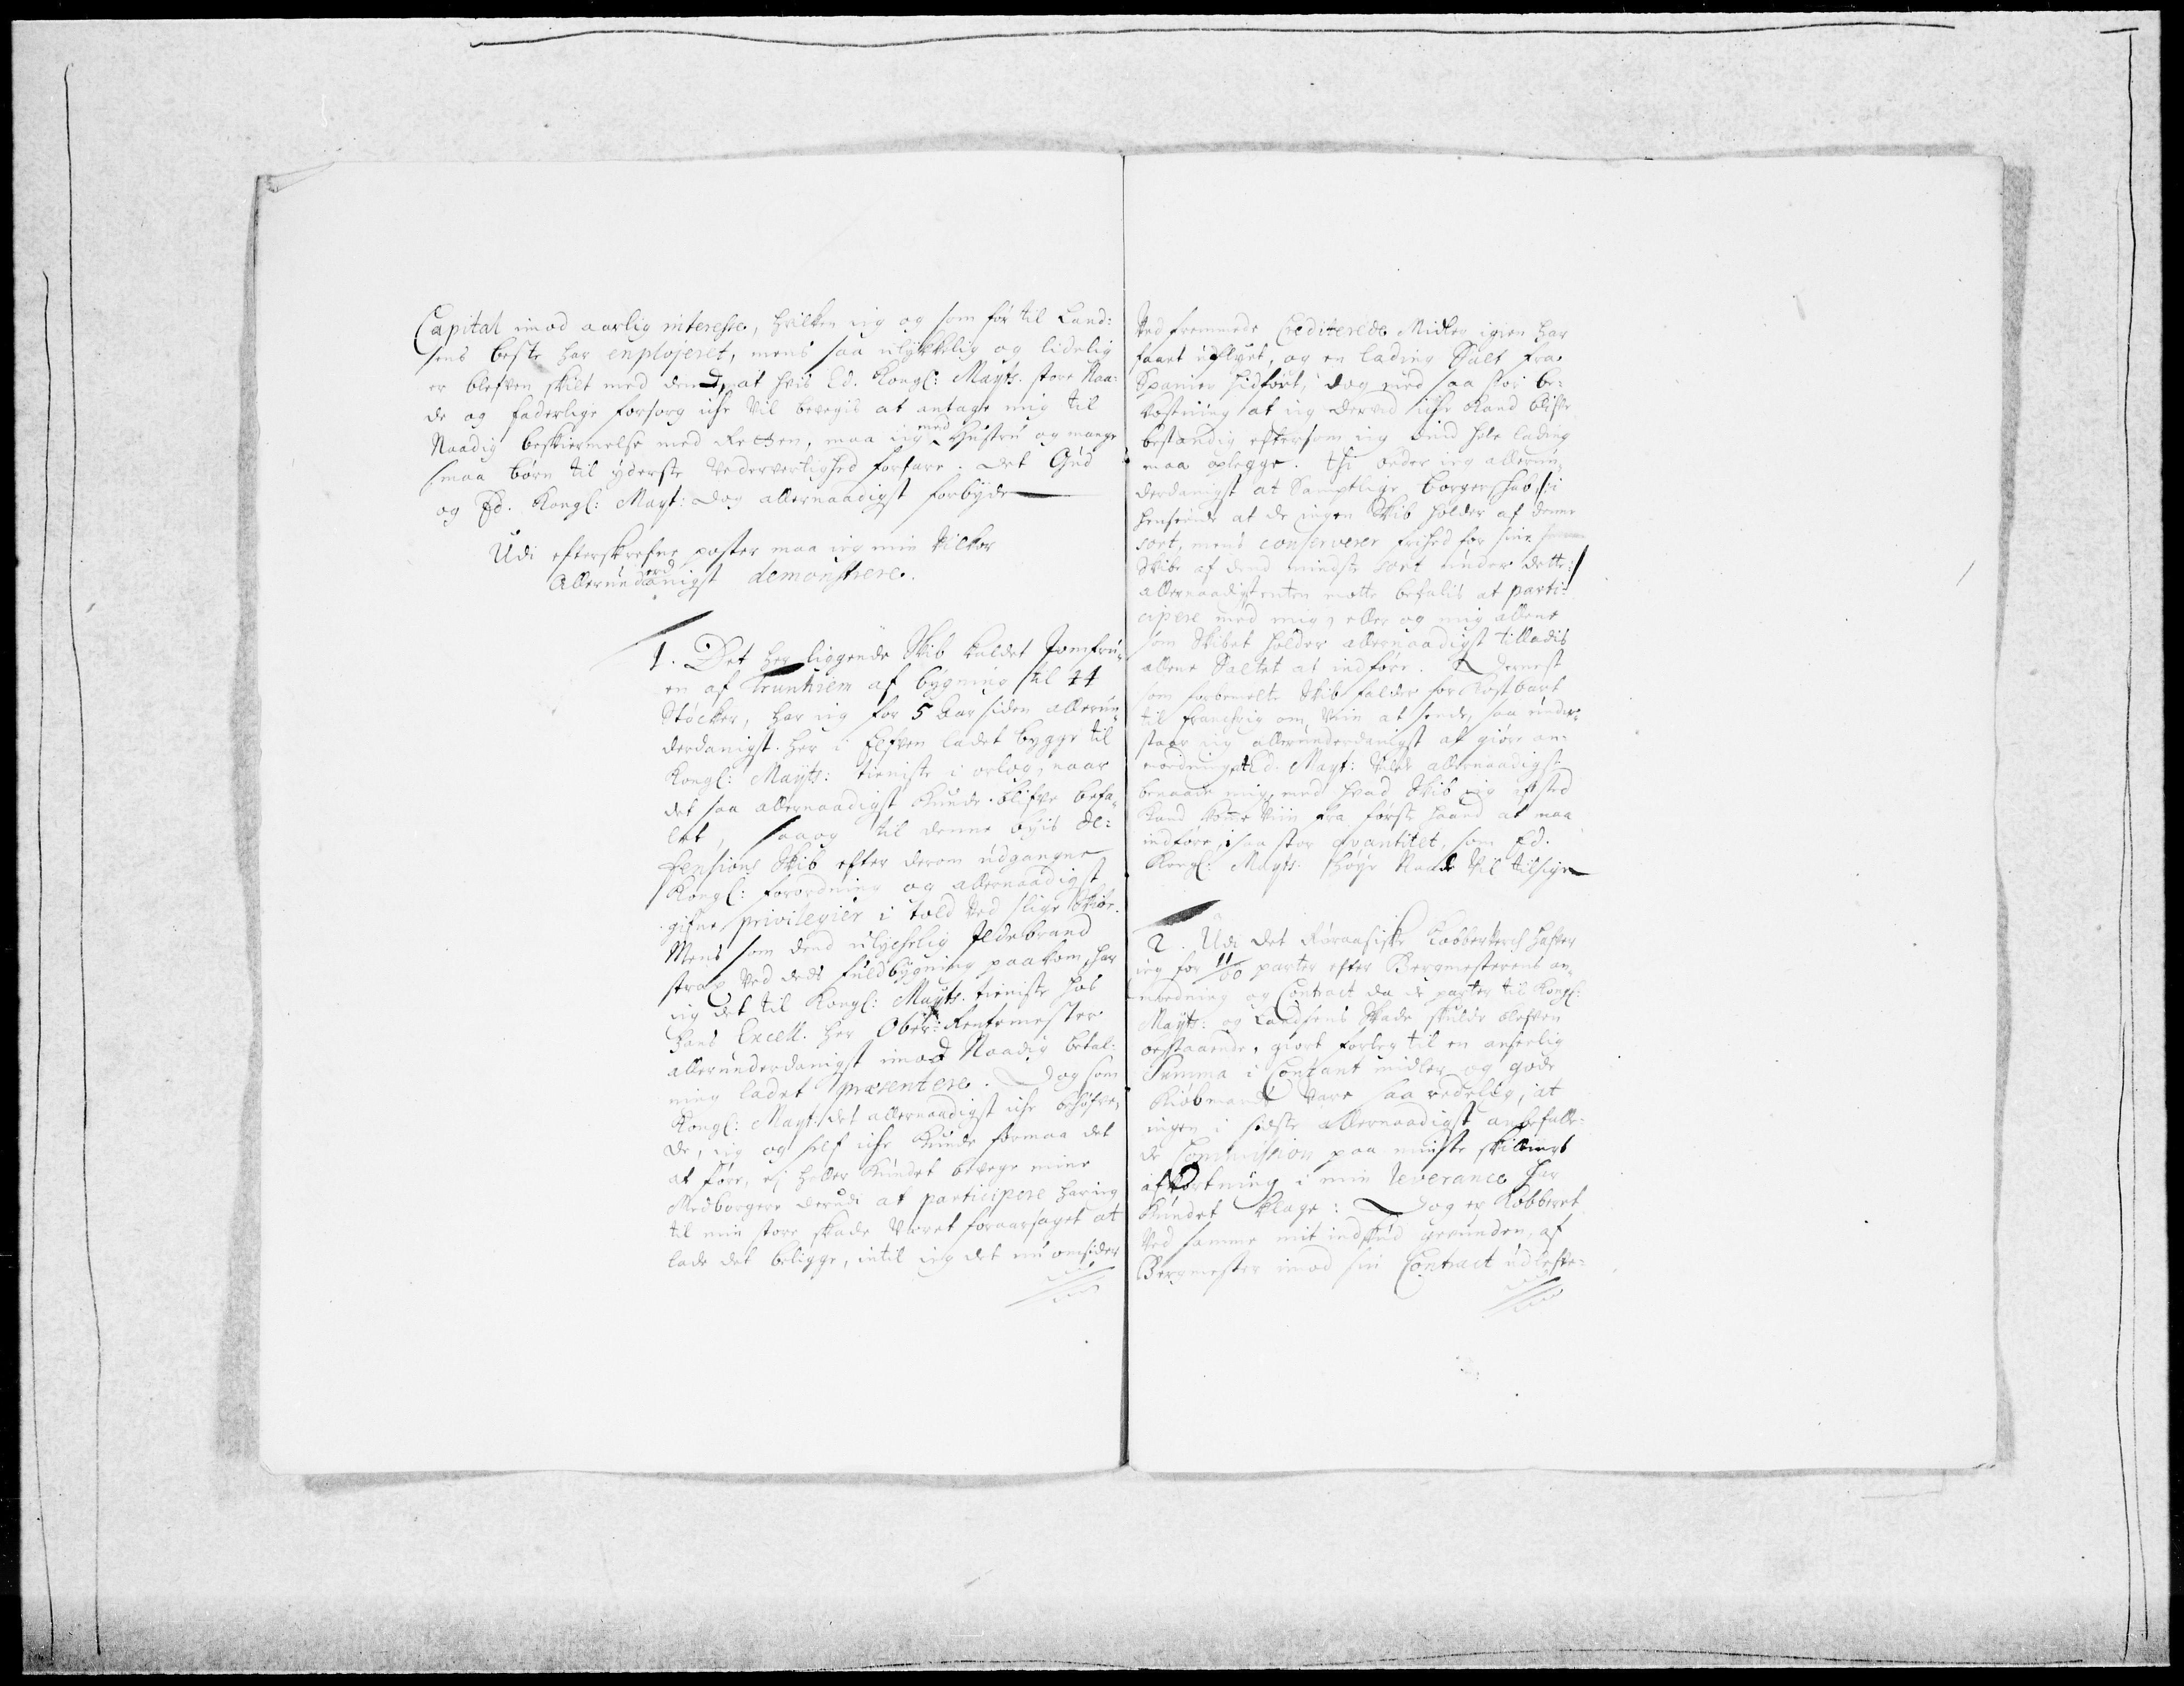 Capital imod aarlig interesse, hvilken ieg og som før til Land:
sens beste har enployeret, mens saa ulykkelig og lidelig
er blefven skilt med dend, at hvis Ed. Kongl: Mayts. store Naa:
de og faderlige forsorg iche vil bevegis at antage mig til
Naadig beskiermelse med Retten, maa ieg med Hustru og mange
smaa børn til yderste Vedervertighed forfare. Det Gud
og Ed. Kongl: Mayt: dog allernaadigst forbyde
Udi efterskrefne poster maa ieg min Vilkor
Allerunderdanigst demonstrere.
1. Det her liggende Skib kaldet Jomfru-
en af Trunhiem af bygning til 44
Støcker, har ieg for 5 Aar siden allerun-
derdanigst her i Elfven ladet bygge til
Kongl: Mayts: tieniste i orlog, naar
det saa allernaadigst kunde blifve befa-
let, saa og til denne byis de:
fensions Skib efter derom udgangne
Kongl: forordning og allernaadigst
gifne privilegier i told ved slige Skibe.
Mens som dend ulychelig Ildebrand
strax ved dets fuldbygning paakom, har
ieg det til Kongl: Mayts. tieniste hos
hans Excell. her Ober: Rentemester
allerunderdanigst imod Naadig betal-
ning ladet præsentere. Dog som
Kongl: Mayt. det allernaadigst iche behøfve,
de, ieg og self iche kunde formaa det
at føre, ej heller kundet bevege mine
Medborgere derudi at participere har ieg
til min store skade Været foraarsaget at
lade det beligge, intil ieg det nu omsider
Ved fremmede Crediterede Midler igien har
faaet udflyet, og en lading Salt fra
Spanien hidført, dog med saa stor be:
kostning at ieg derved iche kand blifve
bestandig eftersom ieg dend hele lading
maa oplegge. Thi beder ieg allerun-
derdanigst at Samptlige borgerskab, /: i
henseende at de ingen Skib holder af denne
sort, mens conserverer frihed for sine
Skibe af dend mindste sort under dette :/
allernaadigst enten motte befalis at parti-
cipere med mig, eller og mig allene
som Skibet holder allernaadigst tilladis
allene Saltet at indføre. Dernest
som forbemelte Skib falder for Kostbart
til Franchrig om Viin at sende, saa under-
staar ieg allerunderdanigst at giøre an-
modning at Ed. Mayt: Vilde allernaadigst
benaade mig, med hvad Skib ieg afsted
kand komme Viin fra første haand at maa
indføre, i saa stor qvantitet, som Ed.
Kongl: Mayts: høye Naade Vil tilsige
2. Udi det Røraasiske Kobberverch hafver
ieg for 11/60 parter efter Bergmesterens an-
modning og Contract da de parter til Kongl:
Mayts: og Landsens Skade skulde blefven
bestaaende, giort forleg til en anseelig
Summa i Contant midler og gode
Kiøbmands Vare saa redelig, at
ingen i sidste allernaadigst anbefalle-
de Commission paa minste skillings
afkortning i min leverance har
kundet klage: Dog er Kobberet
Ved samme mit indskud gevunden, af
Bergmester imod sin Contract udlefve-